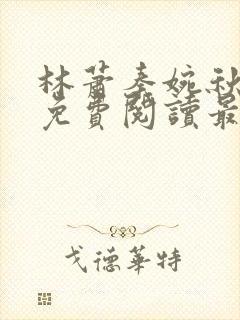 林蕭秦婉秋
免費閱讀最
戈德華特